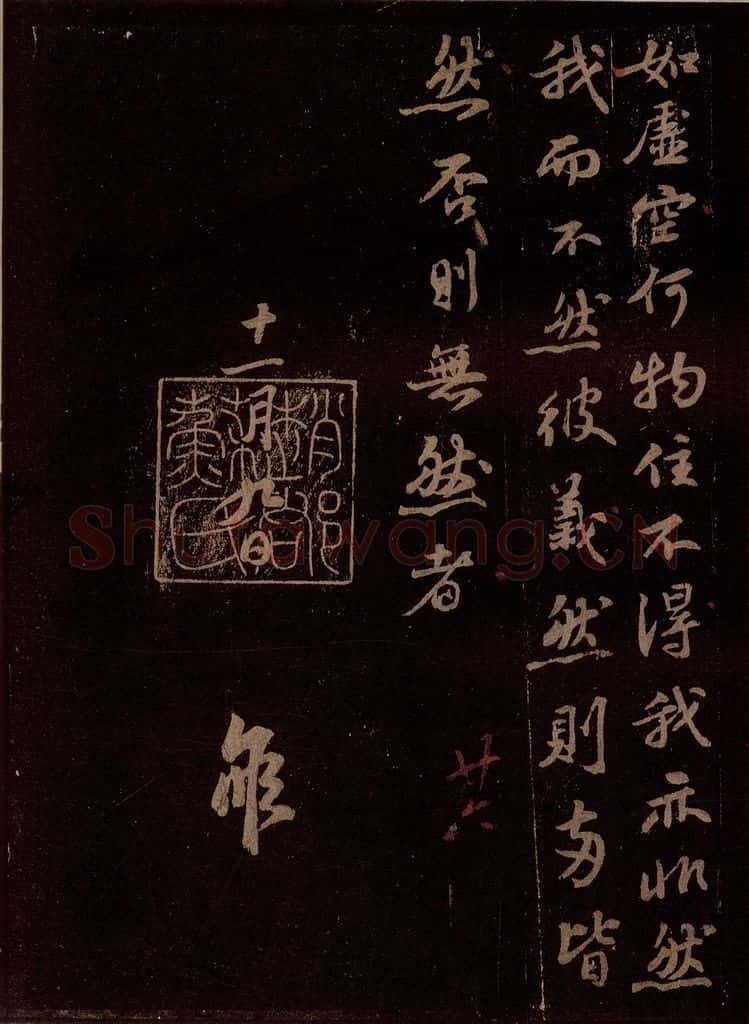 如虛空何物住不得我亦非然
我而不然彼義然則兩皆
然否則無然者
廿六
十一月九日
Shufawang.cn